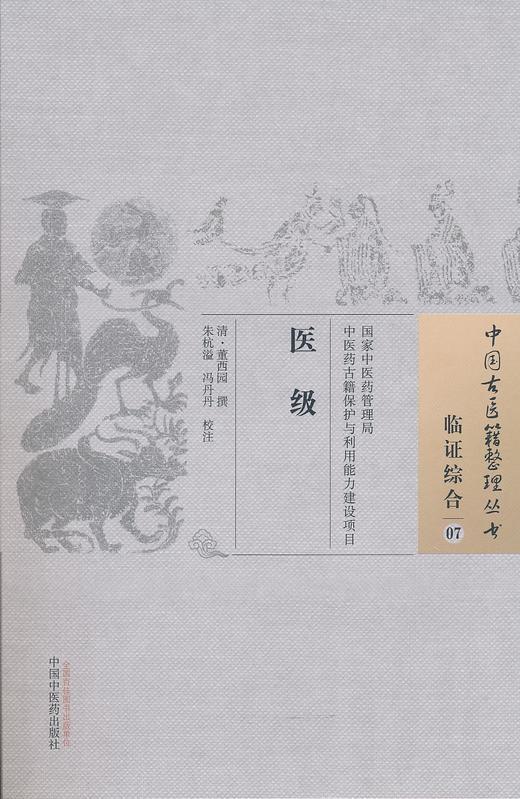 中国古医籍整理丛书
临证综合 07
国家中医药管理局
中医药古籍保护与利用能力建设项目
医级
清·董西园 撰
朱杭溢 冯丹丹 校注
全国百佳图书出版单位
中国中医药出版社